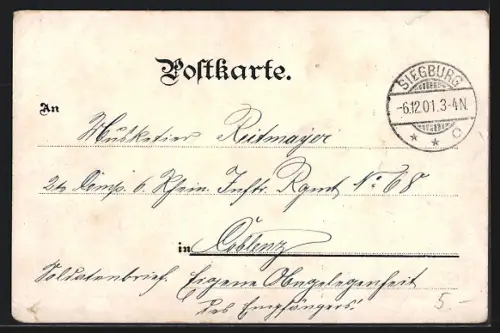 Postkarte.
SIEGBURG
-6.12.01.3-4N
* * c
An
Musketier Reitmayer
2te Comp. 6. Rhein. Inftr. Rgmt. No 68
in Coblenz
Soldatenbrief. Eigene Angelegenheit
des Empfängers.
5.-